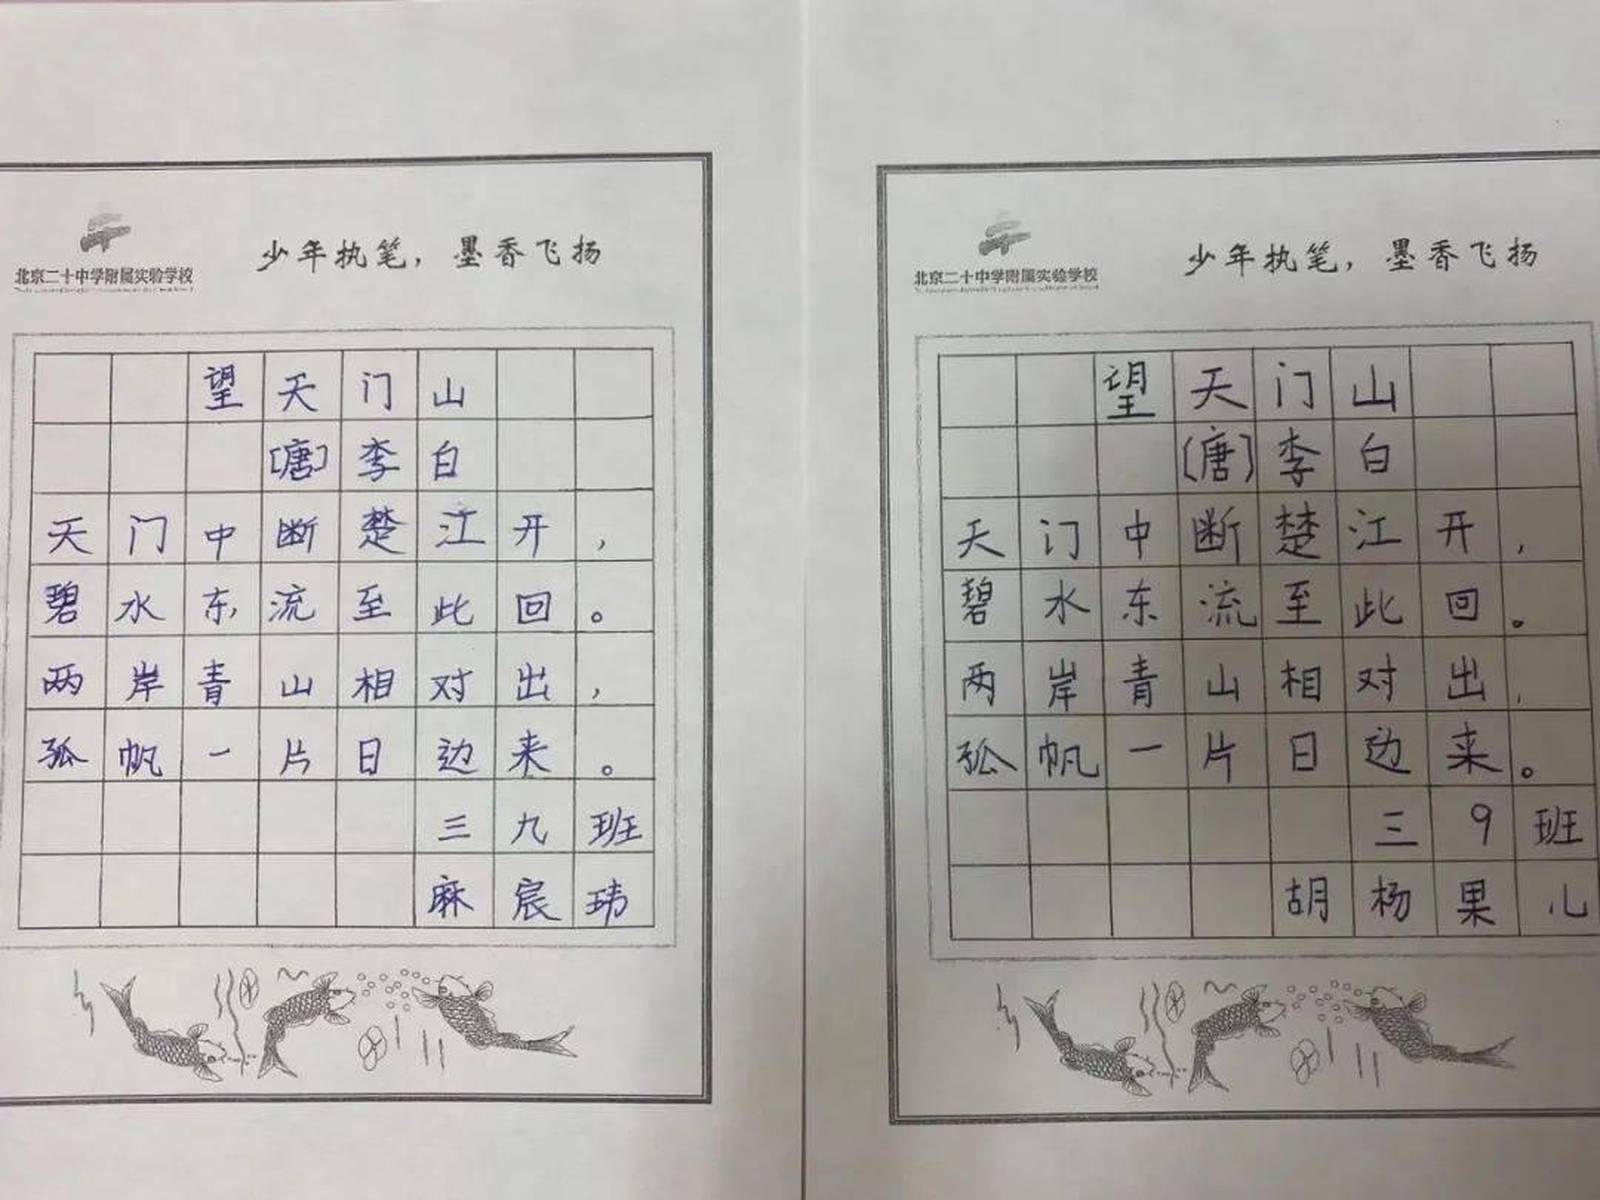 北京二十中学附属实验学校
少年执笔，墨香飞扬
望天门山
[唐]李白
天门中断楚江开，
碧水东流至此回。
两岸青山相对出，
孤帆一片日边来。
三九班
麻宸玮
北京二十中学附属实验学校
少年执笔，墨香飞扬
望天门山
[唐]李白
天门中断楚江开，
碧水东流至此回。
两岸青山相对出，
孤帆一片日边来。
三9班
胡杨果儿